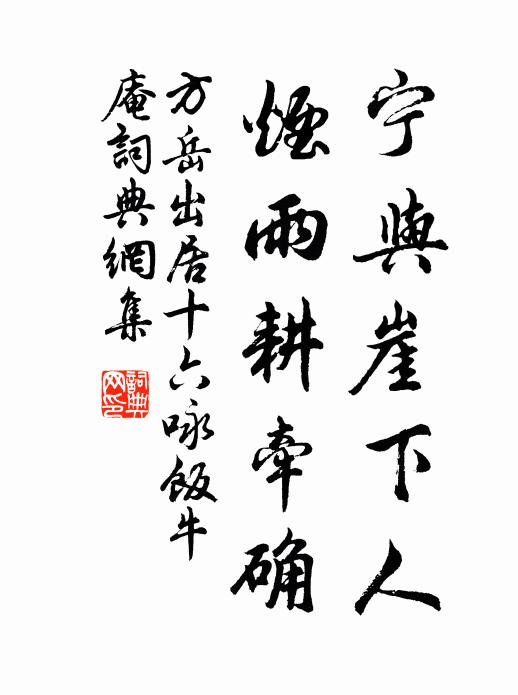 宁與崖下人
煙雨耕牽确
方岳出居十六咏飯牛
庵詞典網集
詞典网印